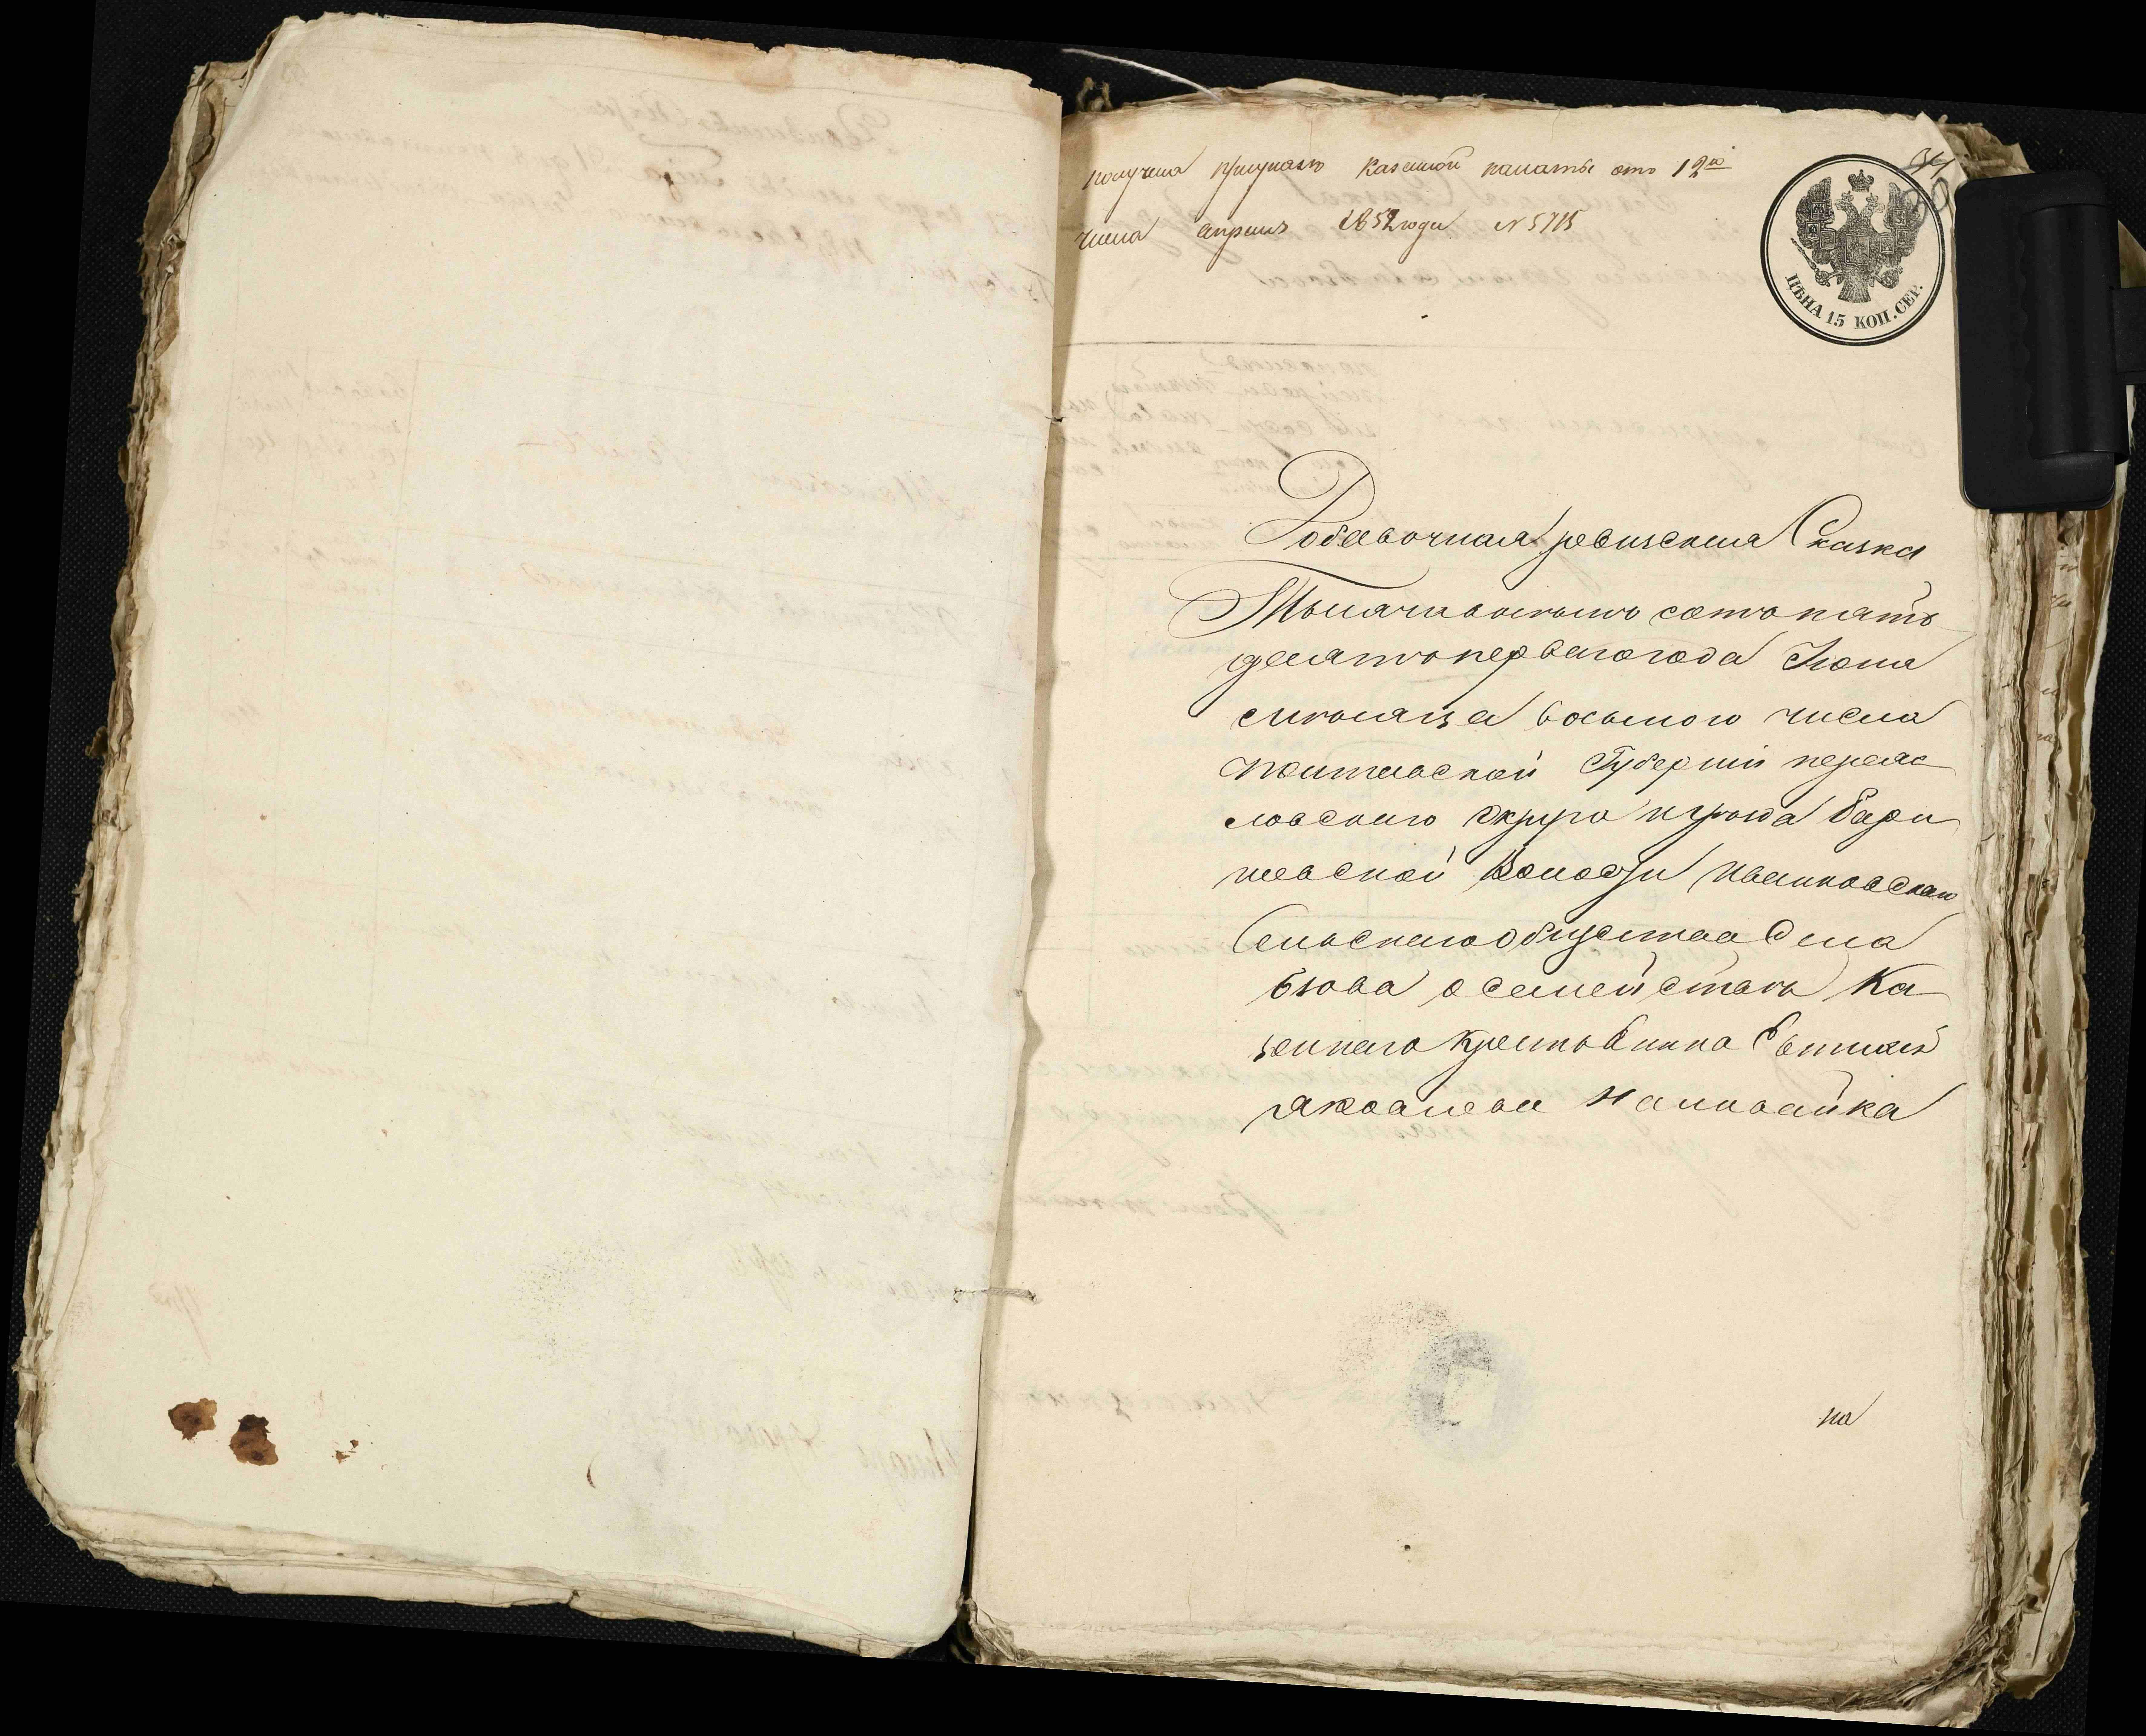 получена при указѣ Казенной палаты отъ 12го
числа апрѣля 1852 года № 5715
34
ЦѢНА 15 КОП. СЕР.
Добавочная ревизская Сказка
Тысяча восемьсотъ пять
десятъ первого года Іюня
месяца восьмого числа
Полтавской Губерніи переяс
ловского округа и уѣзда Бари
шевской Волости Иванковского
Сельского общества Села
о семействѣ Ка
зенного Крестьянина Евтихія
Яковлева Наливайка
на